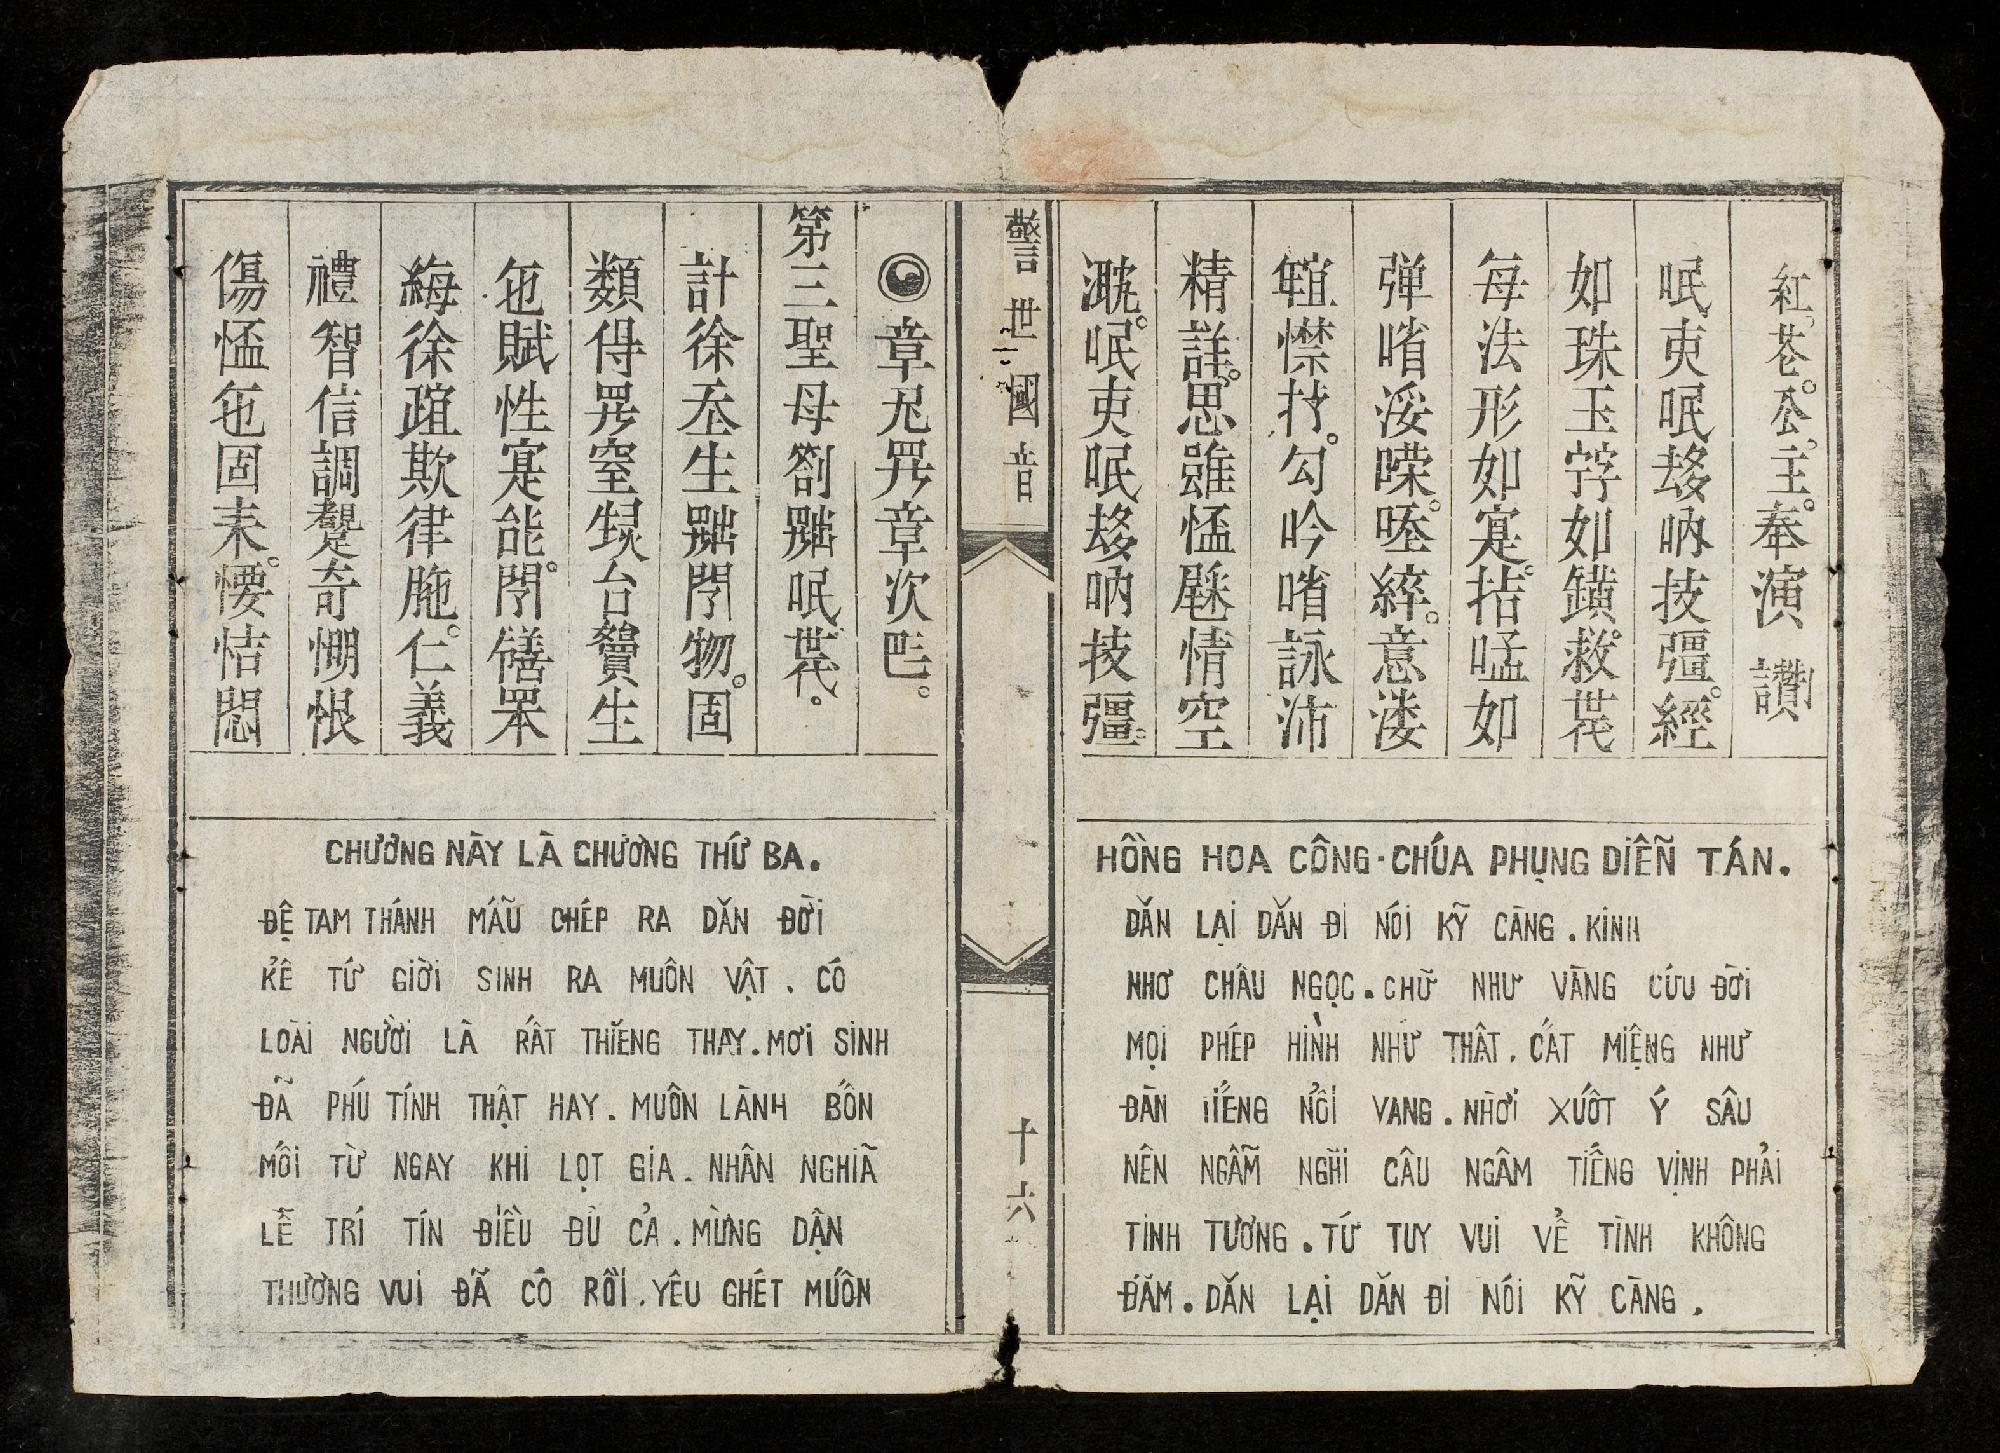 紅花公主奉演讚
呡吏呡𠫾吶技彊。經
如珠玉𡦂如鐄救𠁀
每法形如寔。拮𠰘如
弹㗂浽嗓。意溇
句吟㗂詠沛
精詳。思雖𢝙情空
呡吏呡𠫾吶技彊。
警世國音
十六
章尼𱺵章次𠀧。
第三聖母劄𠚢呡𠁀。
計徐𡗶生𠚢物。固
類得𱺵窒台生
㐌賦性寔能。𦊚
徐欺律。仁義
禮智信調奇恨
傷𢝙㐌固耒。恄悶
HỒNG HOA CÔNG-CHÚA PHỤNG DIỄN TÁN.
DẶN LẠI DẶN ĐI NÓI KỸ CÀNG. KINH
NHƠ CHÂU NGỌC. CHỮ NHƯ VÀNG CỨU ĐỜI
MỌI PHÉP HÌNH NHƯ THẬT. CẮT MIỆNG NHƯ
ĐÀN TIẾNG NỔI VANG. NHỜI XUỐT Ý SÂU
NÊN NGẪM NGHĨ CÂU NGÂM TIẾNG VỊNH PHẢI
TINH TƯƠNG. TỨ TUY VUI VỀ TÌNH KHÔNG
ĐẮM. DẶN LẠI DẶN ĐI NÓI KỸ CÀNG.
CHƯƠNG NÀY LÀ CHƯƠNG THỨ BA.
ĐỆ TAM THÁNH MẪU CHÉP RA DẶN ĐỜI
KỂ TỪ GIỜI SINH RA MUÔN VẬT. CÓ
LOÀI NGƯỜI LÀ RẤT THIÊNG THAY. MƠI SINH
ĐÃ PHÚ TÍNH THẬT HAY. MUÔN LÀNH BỐN
MỐI TỪ NGAY KHI LỌT GIA. NHÂN NGHĨA
LỄ TRÍ TÍN ĐIỀU ĐỦ CẢ. MỪNG DẬN
THƯƠNG VUI ĐÃ CÓ RỒI. YÊU GHÉT MUỐN